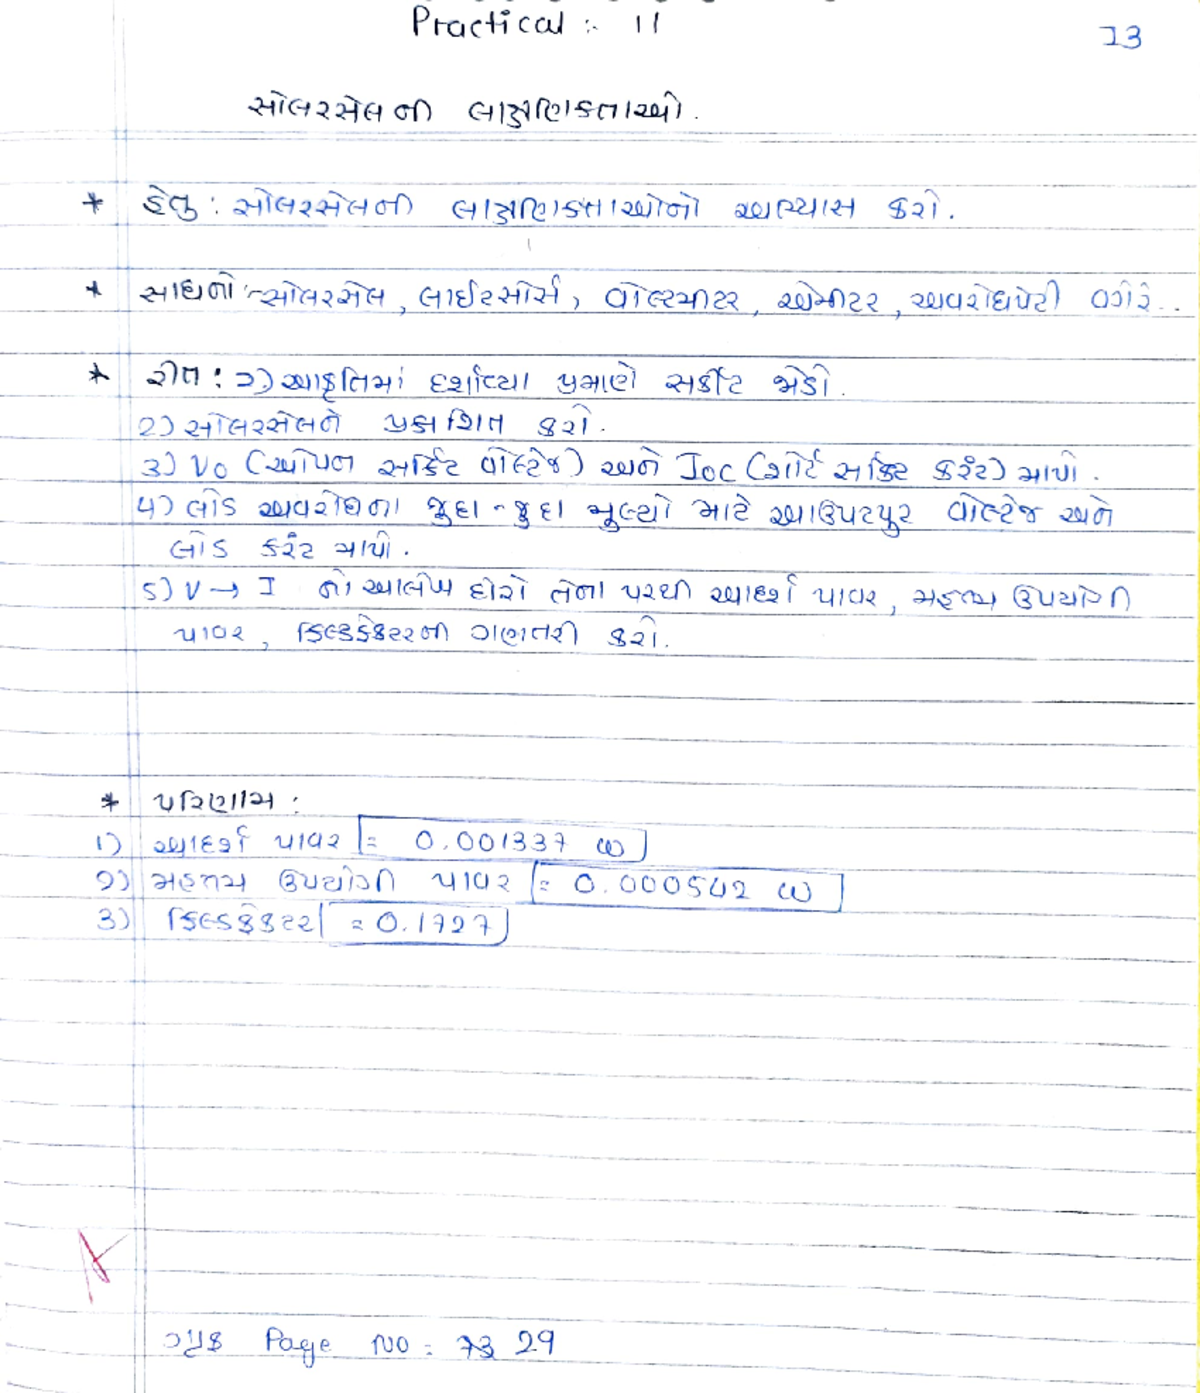 Practical :- 11
13
સોલરસેલ ની લાક્ષણિકતાઓ.
* હેતુ : સોલરસેલની લાક્ષણિકતાઓનો અભ્યાસ કરો.
* સાધનો :- સોલરસેલ, લાઈટસોર્સ, વોલ્ટમીટર, એમીટર, અવરોધપેટી વગેરે..
* રીત : ૧) આકૃતિમાં દર્શાવ્યા પ્રમાણે સર્કીટ જોડો.
૨) સોલરસેલને પ્રકાશિત કરો.
૩) V0 (ઓપન સર્કિટ વોલ્ટેજ) અને Ioc (શોર્ટ સર્કિટ કરંટ) માપો.
૪) લોડ અવરોધના જુદા-જુદા મુલ્યો માટે આઉટપુટ વોલ્ટેજ અને
લોડ કરંટ માપો.
૫) V → I નો આલેખ દોરો તેના પરથી આદર્શ પાવર, મહત્તમ ઉપયોગી
પાવર, ફિલ્ડફેક્ટરની ગણતરી કરો.
* પરિણામ :
1) આદર્શ પાવર = 0.001337 W
૨) મહત્તમ ઉપયોગી પાવર = 0.000542 W
૩) ફિલ્ડફેક્ટર = 0.1727
ગ્રાફ Page NO : 29